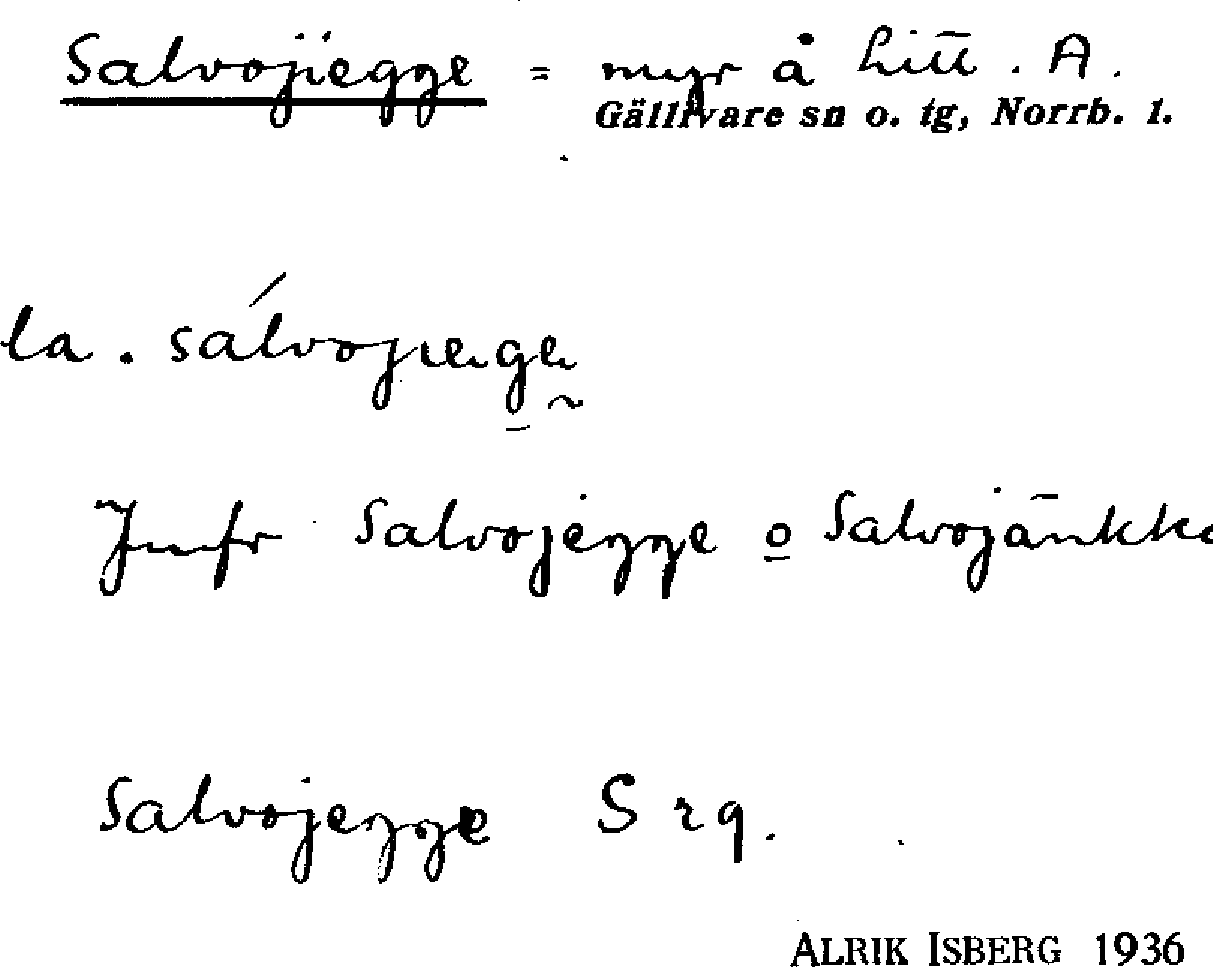 Salvojiegge = myr å Litt. A.
Gällivare sn o. tg, Norrb. l.
la.
Jmfr Salvojegge o Salvojänkka
Salvojegge S rq.
ALRIK ISBERG 1936